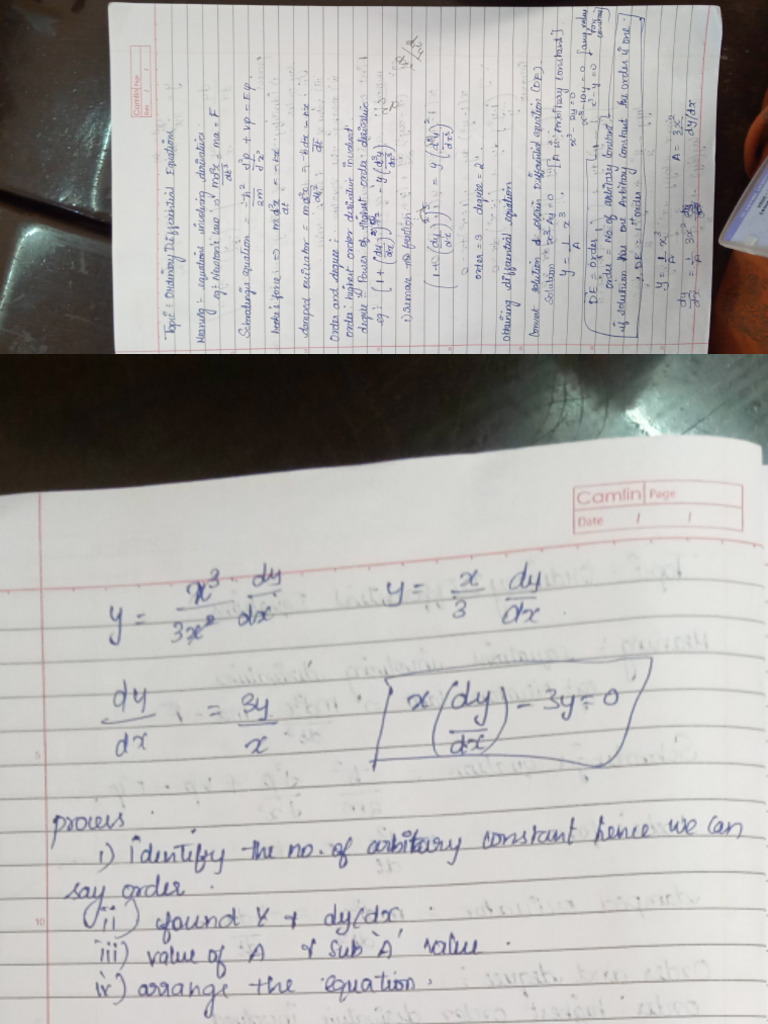 Camlin Page
Date / /
Topic: Ordinary Differential Equations
Meaning: equations involving derivatives
eg: Newton's law of md²x/dt² = ma = F
Hooke's force ⇒ md²x/dt = -kx
Order and degree:
order: highest order derivative involved
degree: Power of highest order derivative
i) Remove the fraction
order = 2 degree = 2
Obtaining differential equation
Convert solution & obtain Differential equation (DE)
Solution: x³ - Ay = 0 [A is Arbitary constant]
y = 1/A x³
DE = order 1
order = No. of arbitary constant
if solution has one Arbitary constant the order is one.
DE = 1st order
y = 1/A x³
dy/dx = 1/A 3x² A = 3x²/dy/dx
Camlin Page
Date / /
y = x³/3x² dy/dx y = x/3 dy/dx
dy/dx = 3y/x x(dy/dx) - 3y = 0
process
i) identify the no. of arbitary constant hence we can
say order.
ii) found y & dy/dx
iii) value of A & sub 'A' value.
iv) arrange the equation.